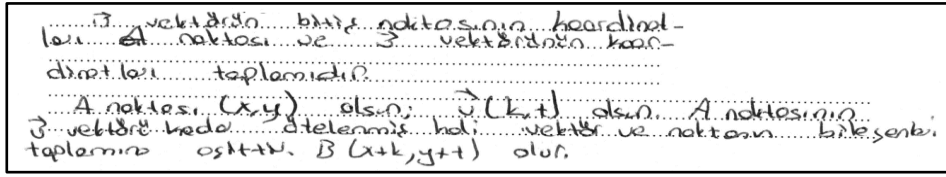 v⃗ vektörün bitiş noktasının koordinat-
ları A noktası ve v⃗ vektörünün koor-
dinatları toplamıdır.
A noktası (x,y) olsun; v⃗ (k,t) olsun. A noktasının
v⃗ vektörü kadar ötelenmiş hali vektör ve noktanın bileşenle.
toplamına eşittir. B (x+k, y+t) olur.